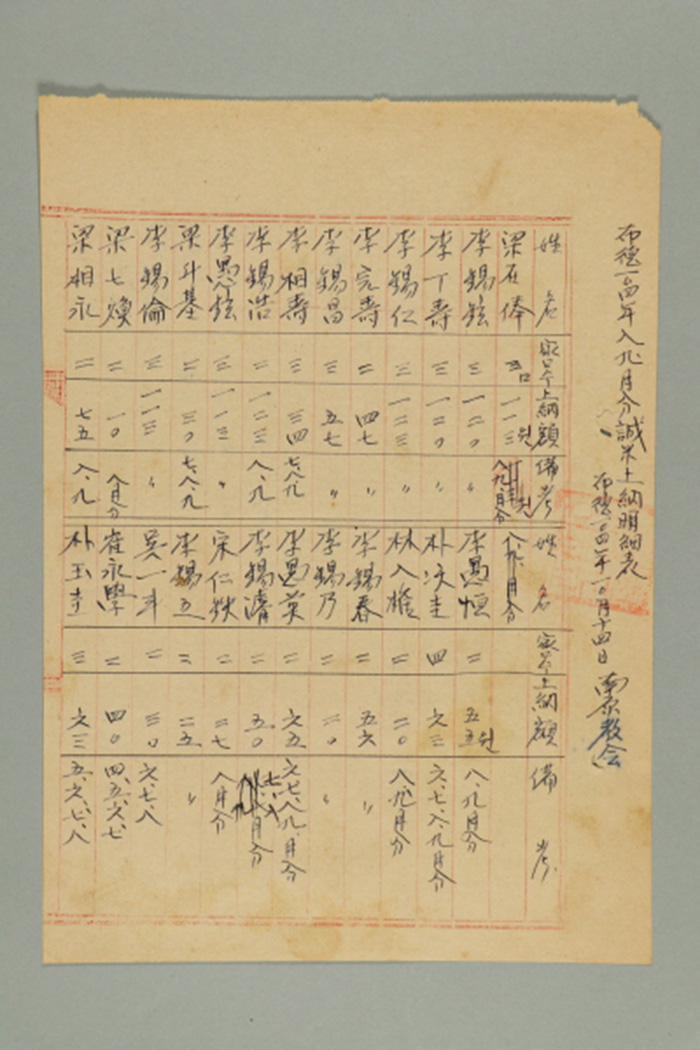 布德一〇四年 八九月分 誠米上納明細表
布德一〇四年一〇月十四日 南原教会
姓名 家口数 上納額 備考
梁在俸 三口 一一三원 八,九月分
李錫鉉 三 一二〇 〃
李丁壽 三 一二〇 〃
李錫仁 三 一二三 〃
李完壽 二 四七 〃
李錫昌 三 五七 〃
李相壽 三 三四 七,八,九
李錫浩 三 一二三 八,九
李愚鉉 三 一一三 〃
梁斗基 二 三〇 七,八,九
李錫倫 三 一一三 〃
梁七煥 二 一〇 八月分
梁相永 二 七五 八,九
姓名 家口数 上納額 備考
李愚恒 二 五五원 八,九月分
朴次圭 四 六三 六,七,八,九月分
林八雄 二 二〇 八,九月分
李錫春 二 五六 〃
李錫乃 二 二〇 〃
李愚英 二 六五 六,七,八,九,月分
李錫濤 二 五〇 七,八月分
宋仁 二 二七 八月分
李錫五 三 二五 〃
吳一斗 二 三〇 六,七,八
崔永學 二 四〇 四,五,六,七
朴玉圭 三 六三 五,六,七,八